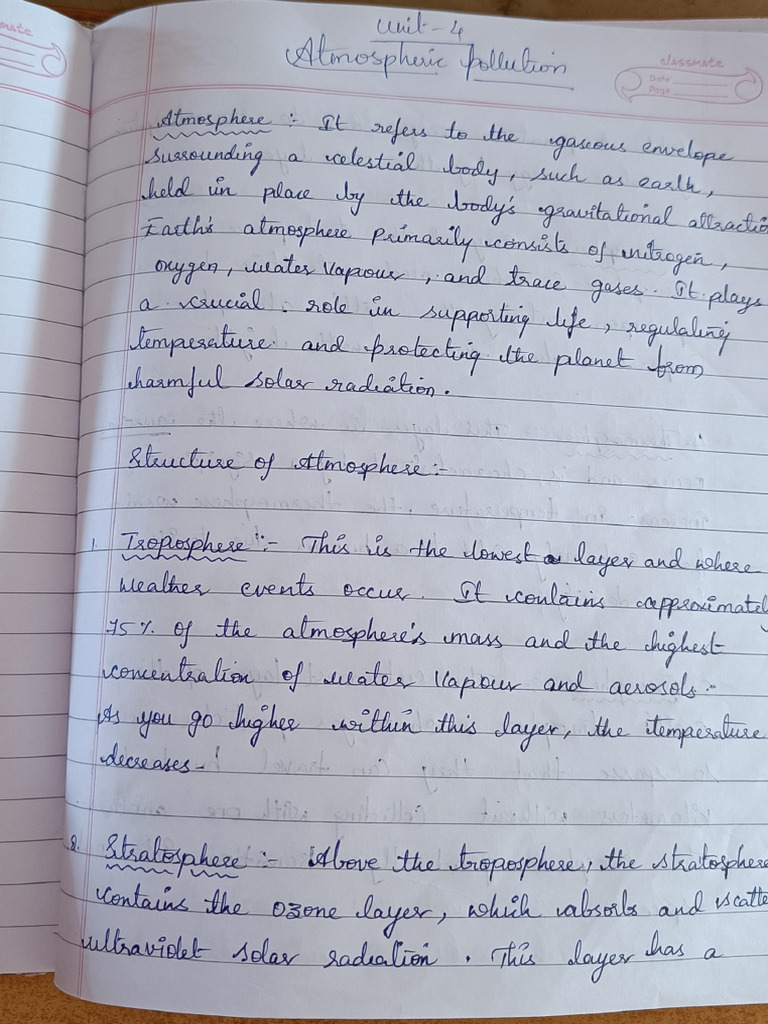 Unit-4
Atmospheric Pollution
classmate
Date
Page
Atmosphere :- It refers to the gaseous envelope
surrounding a celestial body, such as earth,
held in place by the body's gravitational attractio
Earth's atmosphere primarily consists of nitrogen,
oxygen, water vapour, and trace gases. It plays
a crucial role in supporting life, regulating
temperature and protecting the planet from
harmful solar radiation.
Structure of Atmosphere :-
1. Troposphere :- This is the lowest layer and where
weather events occur. It contains approximately
75% of the atmosphere's mass and the highest
concentration of water vapour and aerosols.
As you go higher within this layer, the temperature
decreases.
2. Stratosphere :- Above the troposphere, the stratosphere
contains the ozone layer, which absorbs and scatte
ultraviolet solar radiation. This layer has a